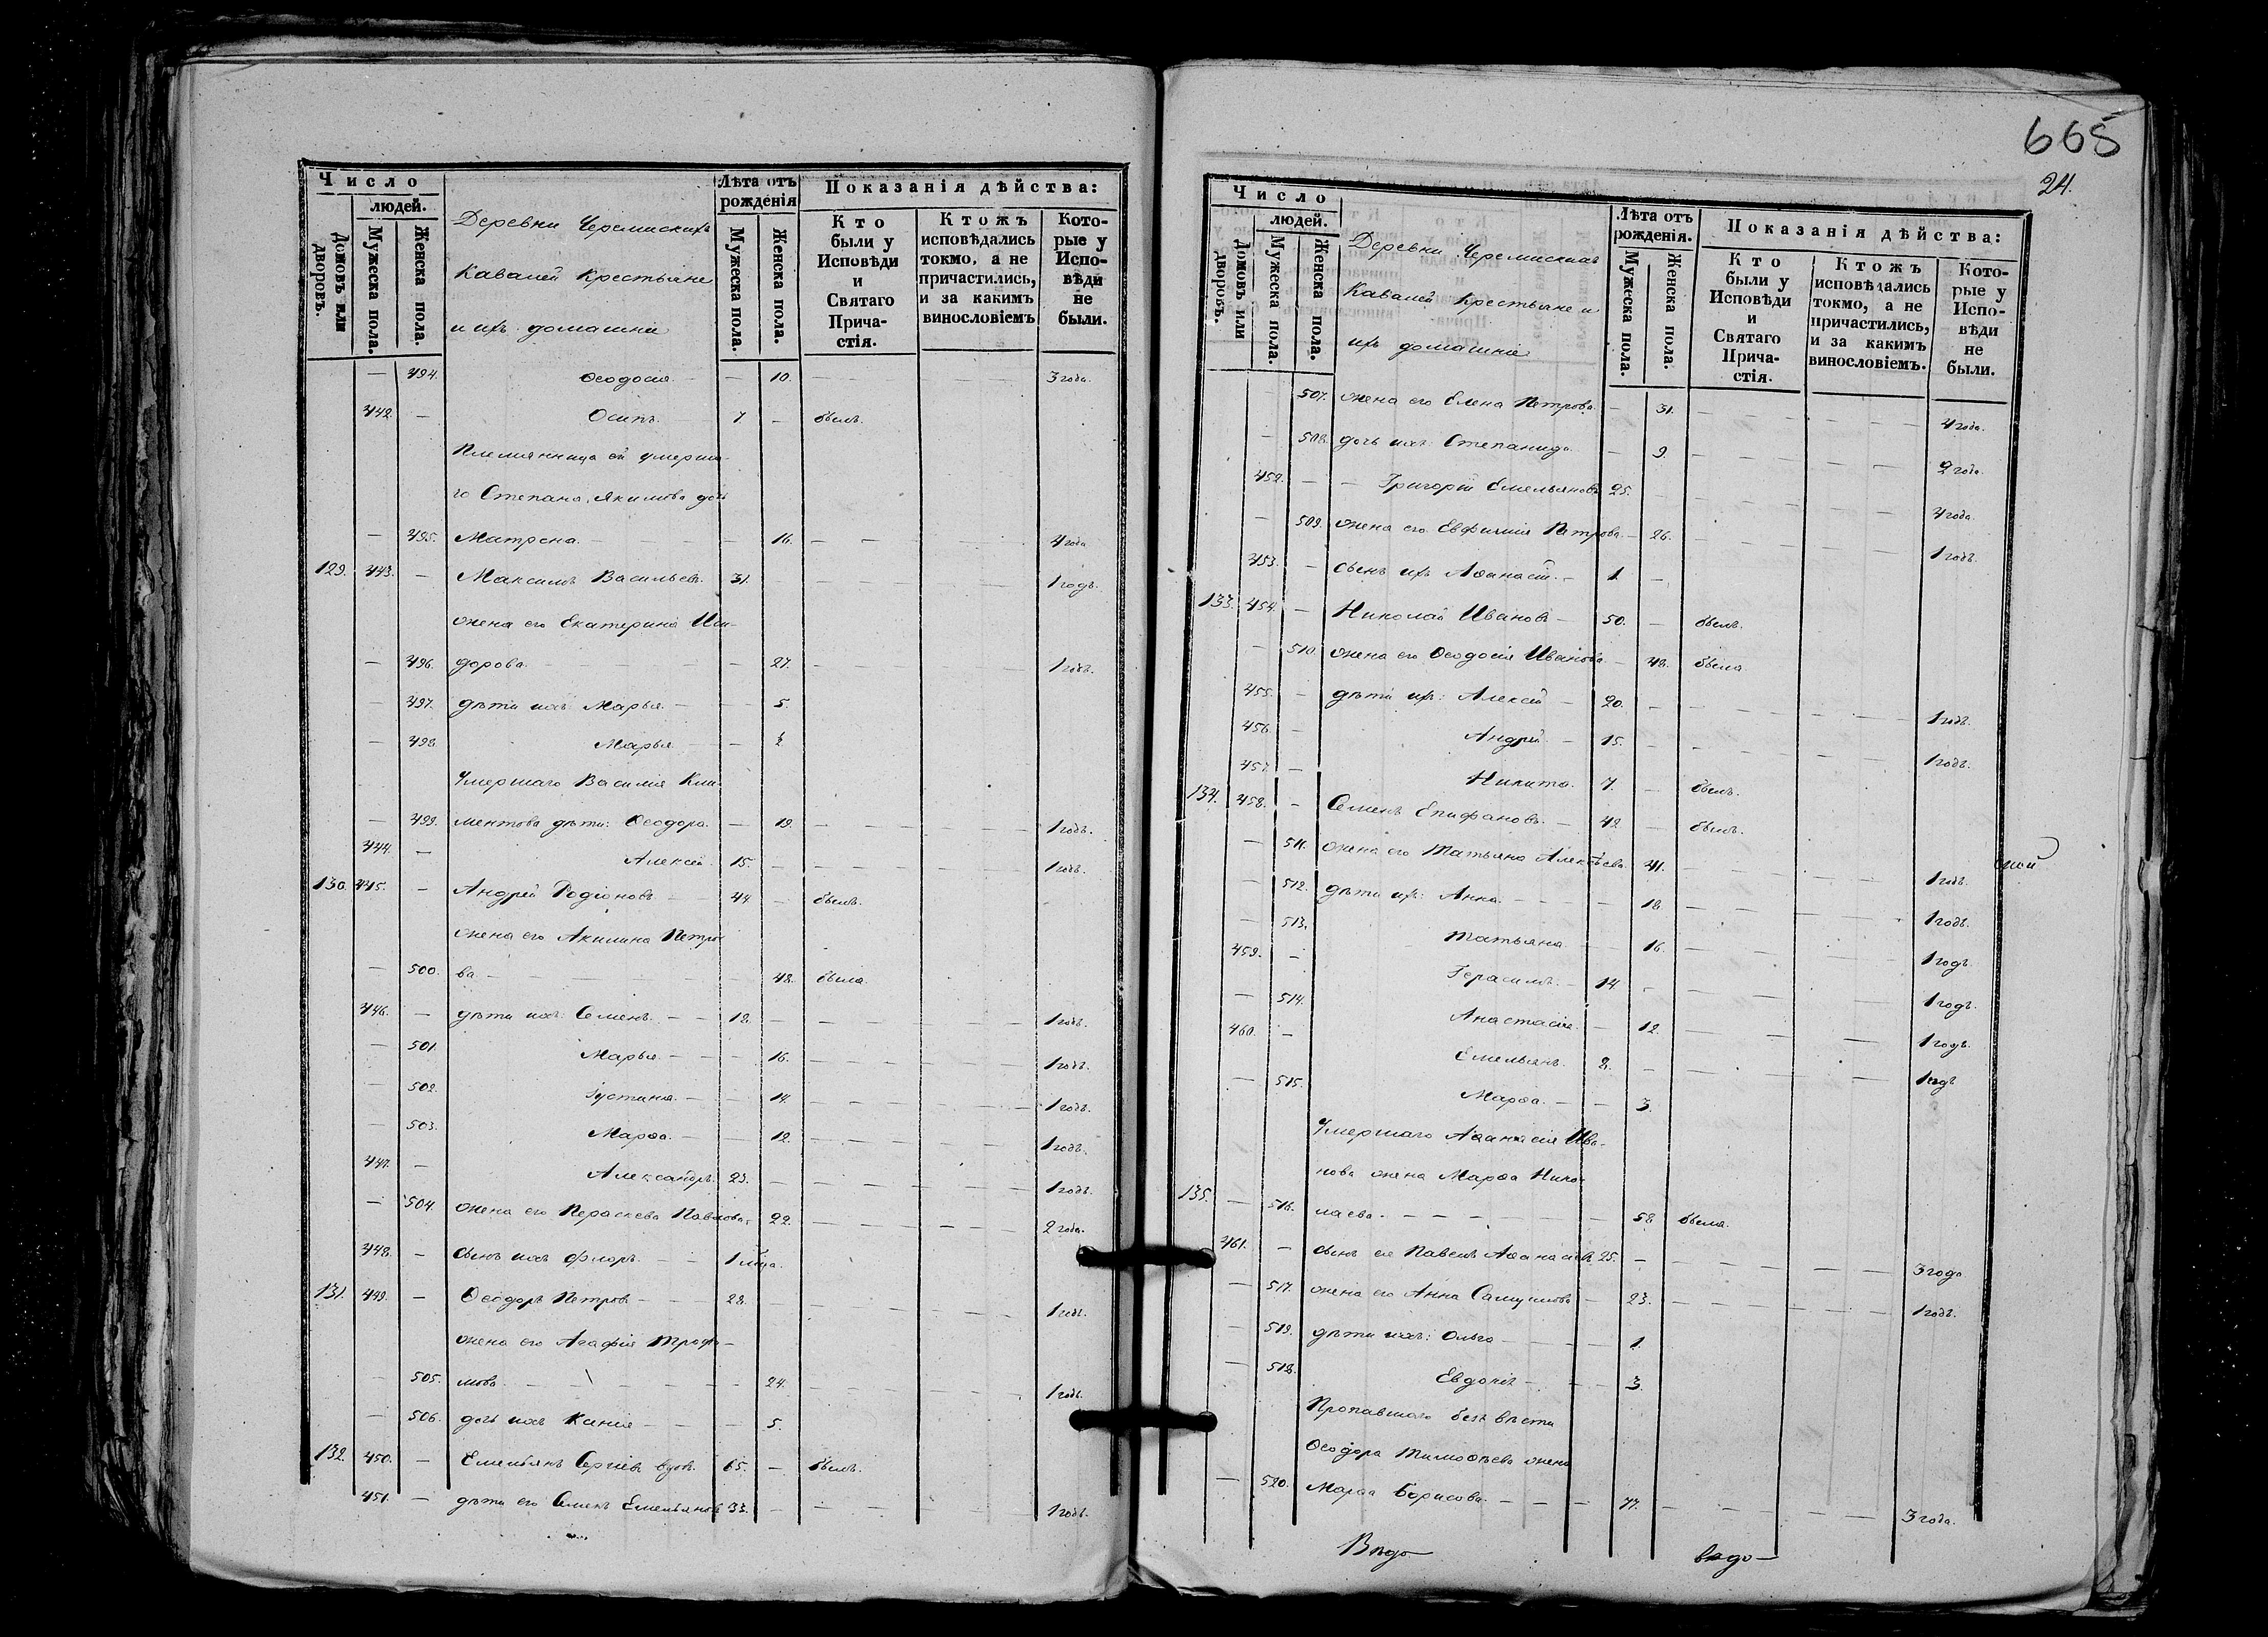 Число
людей.
Домовъ или дворовъ.
Мужеска пола.
Женска пола.
Деревни Черемискихъ
Кавалей Крестьяне
и ихъ домашніе
Лѣта отъ рожденія
Мужеска пола.
Женска пола.
Показанія дѣйства:
Кто были у Исповѣди и Святаго Прича-стія.
Ктожъ исповѣдались токмо, а не причастились, и за какимъ винословіемъ
Кото-рые у Испо-вѣди не были.
— 494. Ѳеодосія. — — 10. — — — — 3 года.
442. — Осипъ. 7. — былъ.
Племянница ей умерша-
го Степана Якимова дочь
— 495. Матрена. — — — 16. — — — — 4 года
129. 443. — Максимъ Васильевъ. 31. — — — 1 годъ.
жена его Екатерина Иси-
— 496. дорова. — — — 27. — — — 1 годъ.
— 497. дѣти ихъ Марья. — — 5.
— 498. Марья — — ½
Умершаго Василія Кли-
— 499. ментова дѣти: Ѳеодора. — 19. — — — 1 годъ.
444. — Алексѣй. 15. — — — 1 годъ.
130. 445. — Андрей Родіоновъ — 44. — былъ.
жена его Акилина Петро-
— 500. ва. — — — 48. была.
446. — дѣти ихъ: Семенъ. — — 18. — — — 1 годъ.
— 501. Марья. — — 16. — — — 1 годъ.
— 502. Іустина. — — 14. — — — 1 годъ.
— 503. Марѳа. — — 12. — — — 1 годъ.
447. — Александръ. 23. — — — 1 годъ.
— 504. жена его Параскева Павлова. 22. — — — 2 года.
448. — сынъ ихъ Флоръ. — — 1 м-ца.
131. 449. — Ѳеодоръ Петровъ — — 28. — — — 1 годъ.
жена его Агафія Трофи-
— 505. мова. — — — 24. — — — 1 годъ.
— 506. дочь ихъ Ксенія — — — 5.
132. 450. — Емельянъ Сергіевъ вдовъ. 65. — былъ.
451. — дѣти его Семенъ Емельяновъ 33. — — — 1 годъ.
665
24.
Число
людей.
Домовъ или дворовъ.
Мужеска пола.
Женска пола.
Деревни Черемискихъ
Кавалей Крестьяне и
ихъ домашніе
Лѣта отъ рожденія.
Мужеска пола.
Женска пола.
Показанія дѣйства:
Кто были у Исповѣди и Святаго Прича-стія.
Ктожъ исповѣдались токмо, а не причастились, и за какимъ винословіемъ.
Кото-рые у Испо-вѣди не были.
— 507. жена его Елена Петрова. — 31. — — — 4 года.
— 508. дочь ихъ: Степанида — 9. — — — 2 года.
452. — — Григорій Емельяновъ 25. — — — 4 года.
— 509. жена его Евфимія Петрова. — 26. — — — 1 годъ.
453. — сынъ ихъ Аѳанасій. — 1 —
133. 454. — Николай Ивановъ — 50. — былъ.
— 510. жена его Ѳеодосія Иванова — 48. была
455. — дѣти ихъ: Алексѣй — 20. — — — 1 годъ.
456. — Андрей. — 15. — — — 1 годъ.
457. — Никита. 7. — былъ.
134. 458. — Семенъ Епифановъ. — 42 — былъ.
— 511. жена его Татьяна Алексѣева. 41. — — — 1 годъ.
— 512. дѣти ихъ: Анна. — — — 18. — — — 1 годъ.
— 513. Татьяна. — — 16. — — — 1 годъ.
459. — Герасимъ. — 14. — — — 1 годъ.
— 514. Анастасія. — 12. — — — 1 годъ.
460. — Емельянъ. 8. — — — 1 годъ
— 515. Марѳа. — — 3.
Умершаго Аѳанасія Ива-
нова жена Марѳа Нико-
135. — 516. лаева. — — — — 58 была.
461. — сынъ ея Павелъ Аѳанасьевъ. 25. — — — 3 года
— 517. жена его Анна Самуилова — 23. — — — 1 годъ.
— 519. дѣти ихъ: Ольга — — 1.
— 518. Евдокія — — 3.
Пропавшаго безъ вѣсти
Ѳеодора Тимоѳѣева жена
— 520. Марѳа Борисова. — — — 77. — — — 3 года.